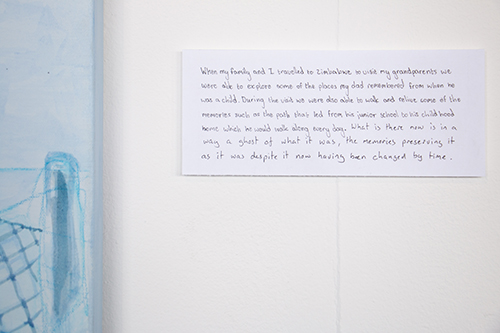 When my family and I travelled to Zimbabwe to visit my grandparents we
were able to explore some of the places my dad remembered from when he
was a child. During the visit we were also able to walk and relive some of the
memories such as the path that led from his junior school to his childhood
home which he would walk along every day. What is there now is in a
way a ghost of what it was, the memories preserving it
as it was despite it now having been changed by time.